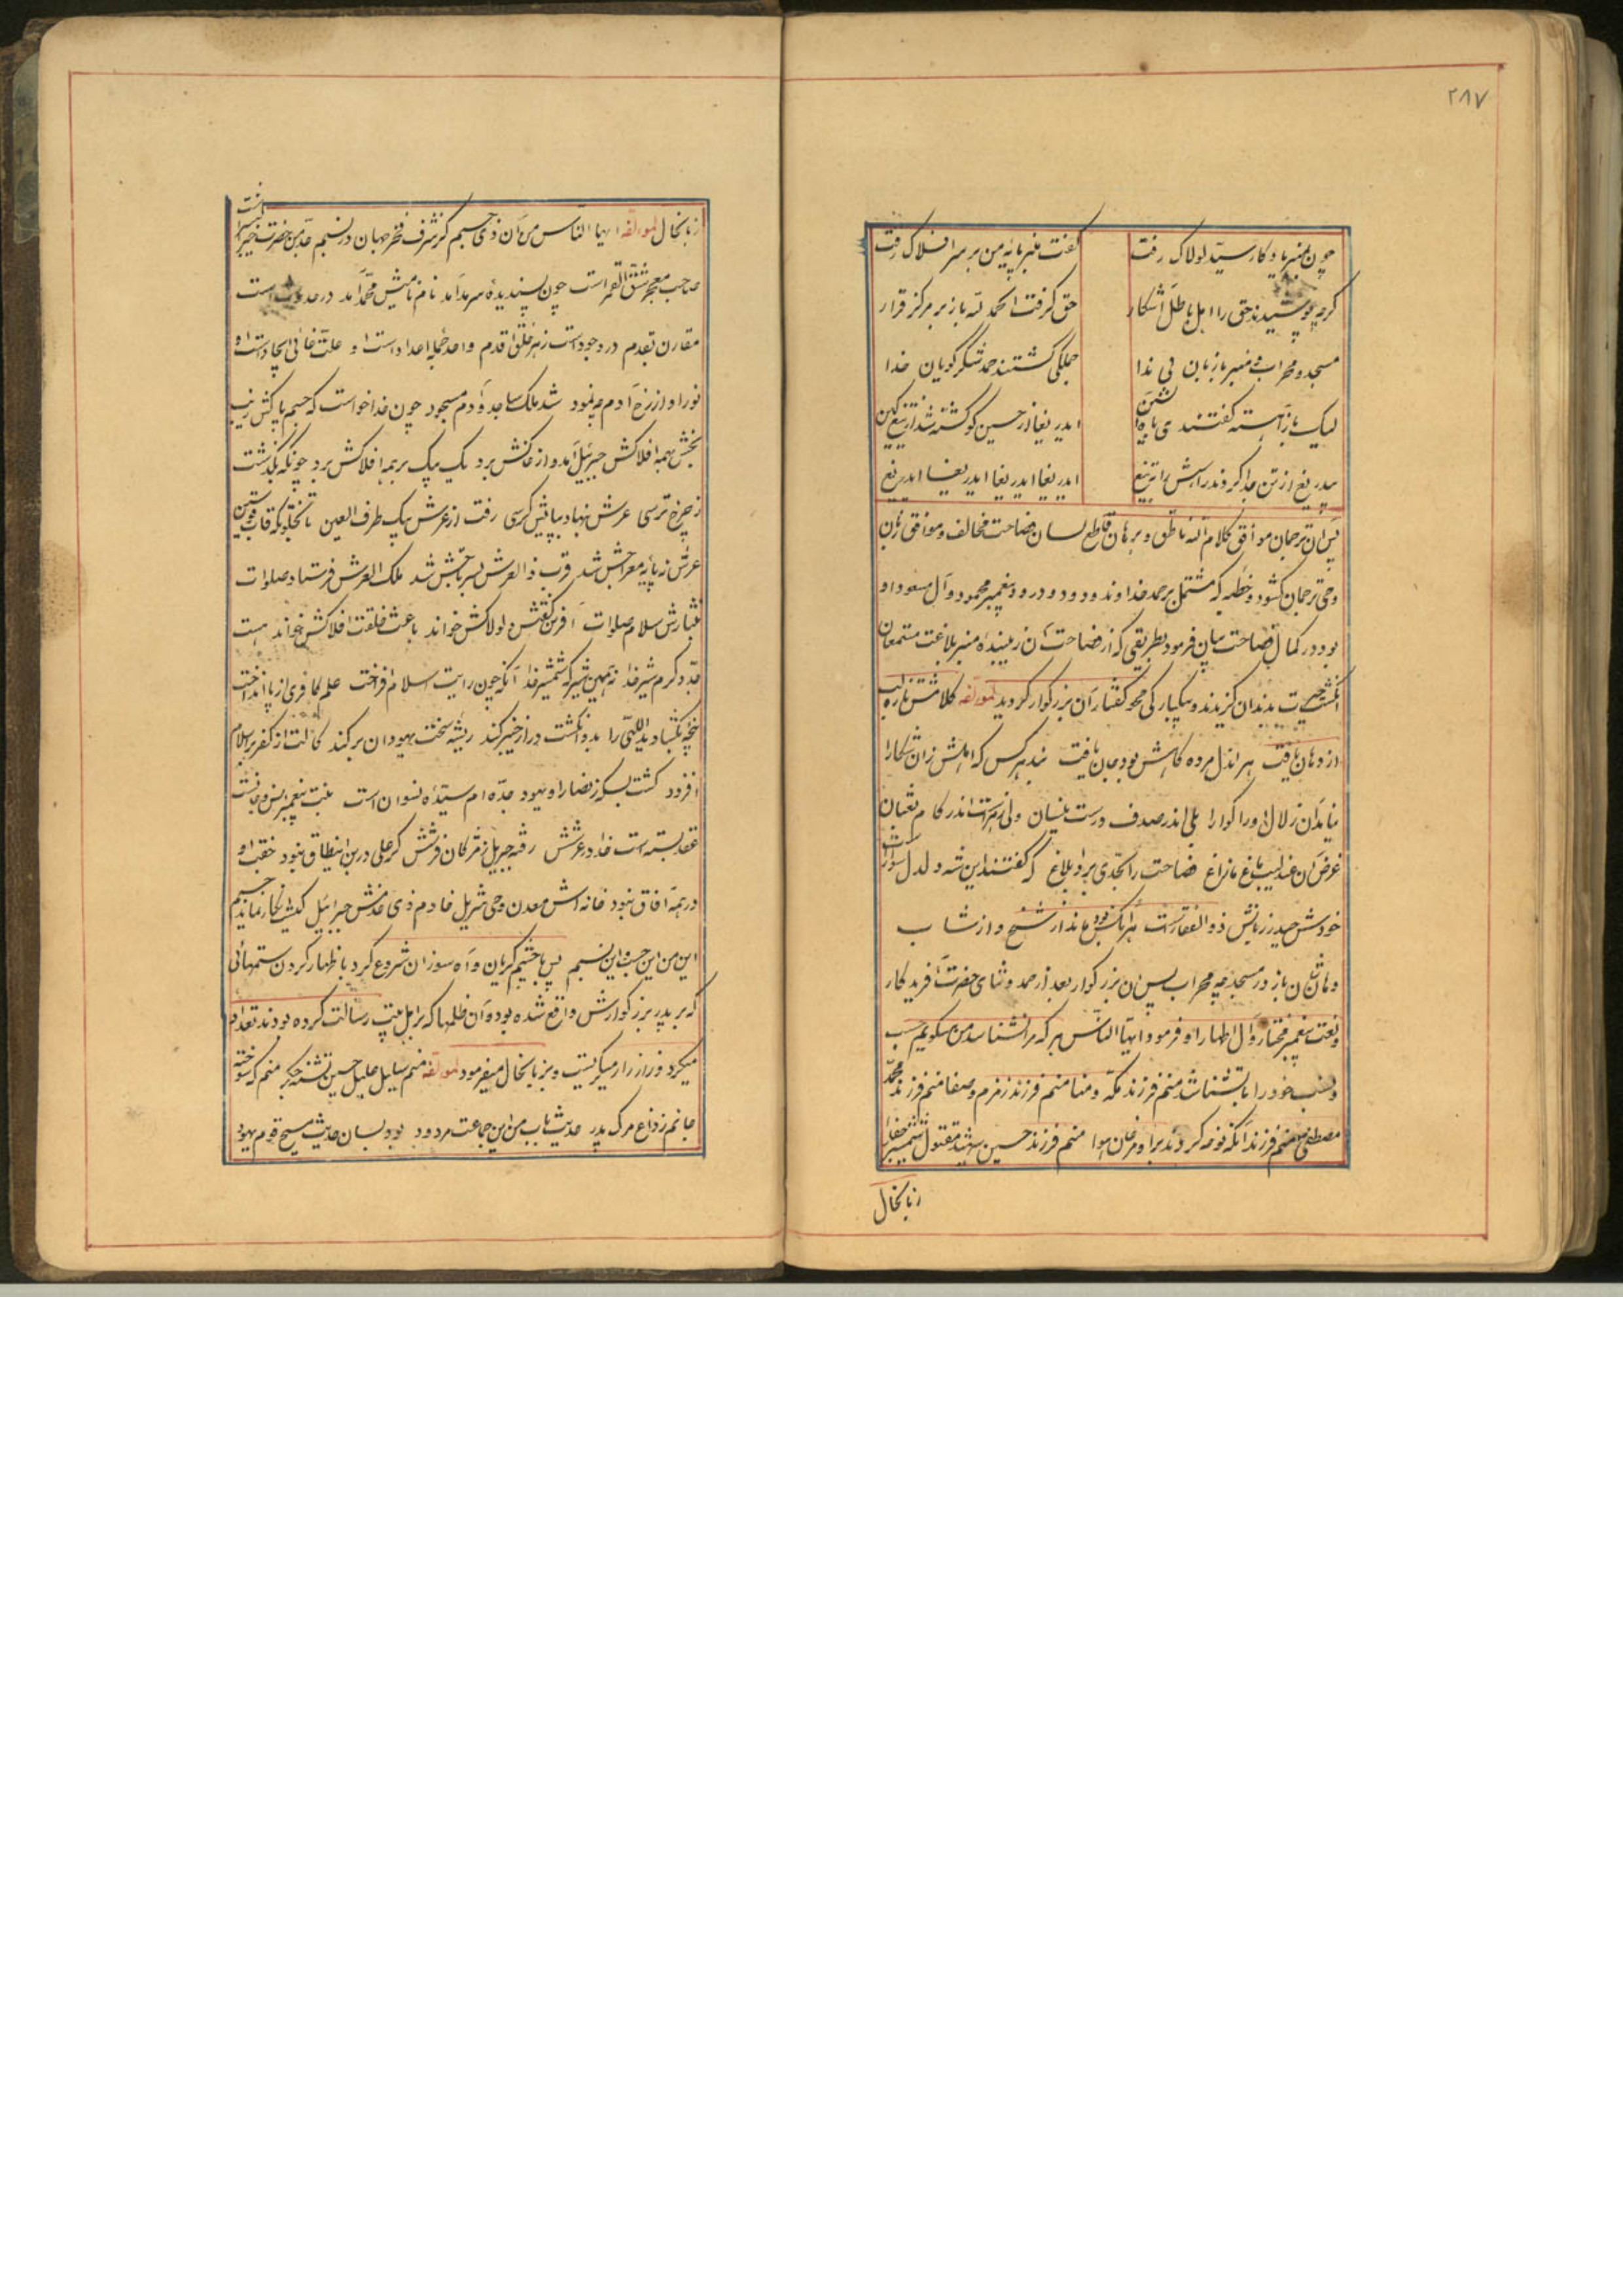 ۲۸۷
چون بمنبر یادکار سید لولاک رفت
کفت منبر پایه من بر سر افلاک رفت
کرچه پوشیدند حق را اهل باطل آشکار
حق کرفت الحمد لله باز بر مرکز قرار
مسجد و محراب و منبر با زبان بی ندا
جملکی کشتند حمد و شکر کویان خدا
لیک باز آهسته کفتند
ایدریغا از حسین کو کشته شد از تیغ کین
بیدریغ از تن جدا کردند رأسش را به تیغ
ایدریغا ایدریغا ایدریغا ایدریغ
پس آن ترجمان موافق کلام الله ناطق و برهان قاطع لسان فصاحت مخالف و موافق زبان
وحی ترجمان کشود و خطبه که مشتمل بر حمد خداوند ودود و درود پیغمبر محمود و آل مسعود او
بود در کمال فصاحت بیان فرمود بطریقی که از فصاحت آن زیبنده منبر بلاغت مستمعان
انکشت حیرت بدندان کزیدند و بیکبارکی محو کفتار آن بزرکوار کردید لمولفه کلامش تا ره
از دهان یافت هر اندل مرده کاهش بود جان یافت
نیامد آن زلال او را کوارا بلی اندر صدف در است نیسان ولی زهر است اندر کام ثعبان
غرض آن عندلیب باغ مازاغ فصاحت را بحدی برد و ابلاغ که کفتند این شه دلدل سوار است
خودش حیدر زبانش ذو الفقار است
دهانشان باز در مسجد چه محراب پس آن بزرکوار بعد از حمد و ثنای حضرت آفریدکار
و نعت پیغمبر مختار و آل اطهار او فرمود ایها الناس هر که مرا نشناسد من میکویم حسب
و نسب خود را تا بشناسد منم فرزند مکه و منا منم فرزند زمزم و صفا منم فرزند محمد
مصطفی منم فرزند آنکه نوحه کردند بر او مرغان هوا منم فرزند حسین شهید مقتول شمشیر جفا
زبانحال
زبانحال لمولفه ایها الناس من آن ذی حسبم کز شرف فخر جهان در نسبم جد من حضرت خیر البشر است
صاحب معجز شق القمر است چون پسندیده سرمد آمد نام نامیش محمد آمد در حدوث است
مقارن بقدم در وجود است ز هر خلق اقدم واحد جمله اعداد است او علت غائی ایجاد است او
نور او از رخ آدم چو نمود شد ملک ساجد و آدم مسجود چون خدا خواست که جسم پاکش زیب
بخشد بهمه افلاکش جبرئیل آمد و از خاکش برد یک بیک بر همه افلاکش برد چونکه بکذشت
ز چرخ ترسی عرش بنهاد بپایش کرسی رفت از عرش بیک طرف العین تا بخلوتکه قاب قوسین
عرش زپایه معراجش شد قرب ذا العرش بسر تاجش شد ملک العرش فرستاد صلوات
بنثارش سلام صلوات آفرین کفتش و لولاکش خواند باعث خلقت افلاکش خواند هست
جد دکرم شیر خدا نه همین شیر که شمشیر خدا آنکه چون رایت اسلام فراخت علم کافری از پا انداخت
پنجه بکشاد ید اللهی را بدو انکشت در از خیبر کند ریشه سخت یهودان بر کند کاست از کفر بر اسلام
افزود کشت بسکه ز نصارا و یهود جده ام سیده نسوان است بنت پیغمبر انس و جان است
عقد بسته است خدا در عرشش رفته جبریل ز مژکان فرشش کر علی در بر این طاق نبود جفت او
در همه آفاق نبود خانه اش معدن وحی تنزیل خادم ذی خدمش جبرائیل
این من این حسب و این نسبم پس با چشم کریان و آه سوزان شروع کرد باظهار کردن ستمهائی
که بر پدر بزرکوارش واقع شده بود و آن ظلمها که بر اهل بیت رسالت کرده بودند تعداد
میکرد و زار زار میکریست و بزبانحال میفرمود لمولفه منم سلیل علیل حسین تشنه جکر منم که سوخته
جانم ز داغ مرک پدر حدیث باب من این جماعت مردود بود بسان حدیث مسیح قوم یهود